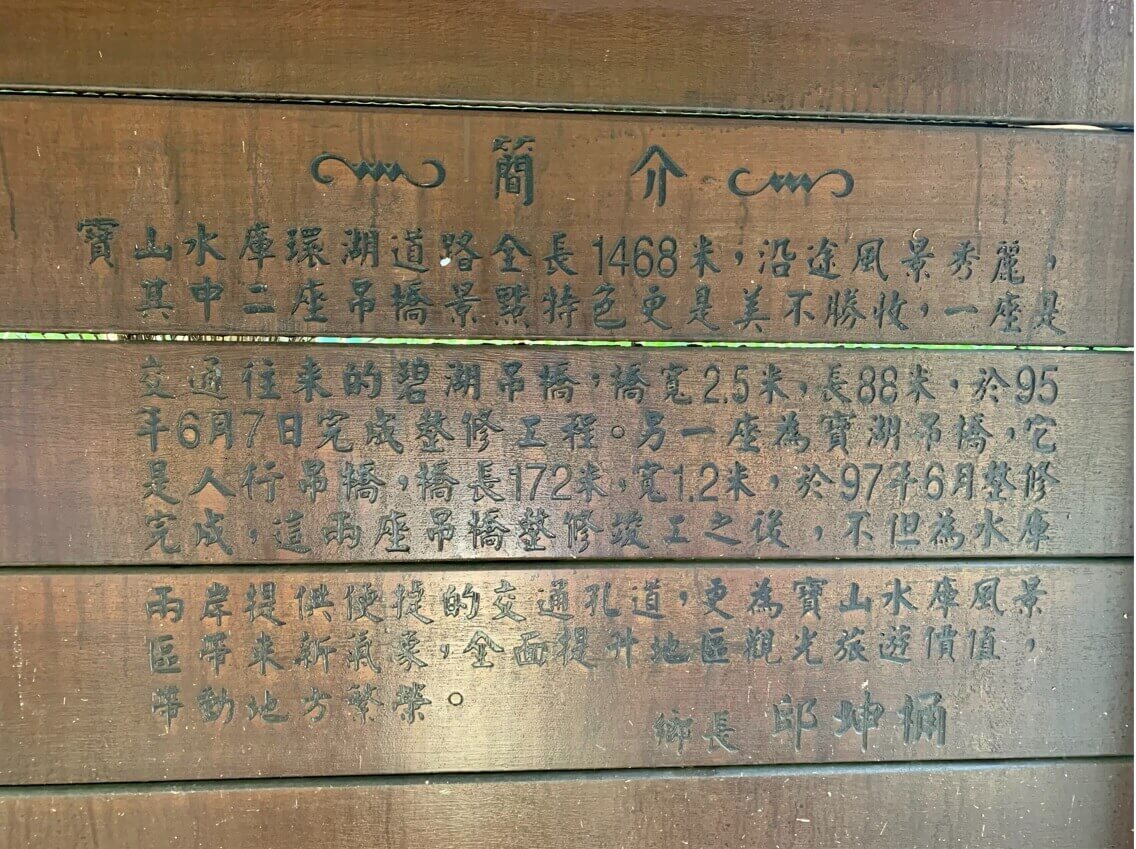 簡介
寶山水庫環湖道路全長1468米，沿途風景秀麗，
其中二座吊橋景點特色更是美不勝收，一座是
交通往來的碧湖吊橋，橋寬2.5米，長88米，於95
年6月7日完成整修工程。另一座為寶湖吊橋，它
是人行吊橋，橋長172米，寬1.2米，於97年6月整修
完成，這兩座吊橋整修竣工之後，不但為水庫
兩岸提供便捷的交通孔道，更為寶山水庫風景
區帶來新氣象，全面提升地區觀光旅遊價值，
帶動地方繁榮。
鄉長 邱坤桶